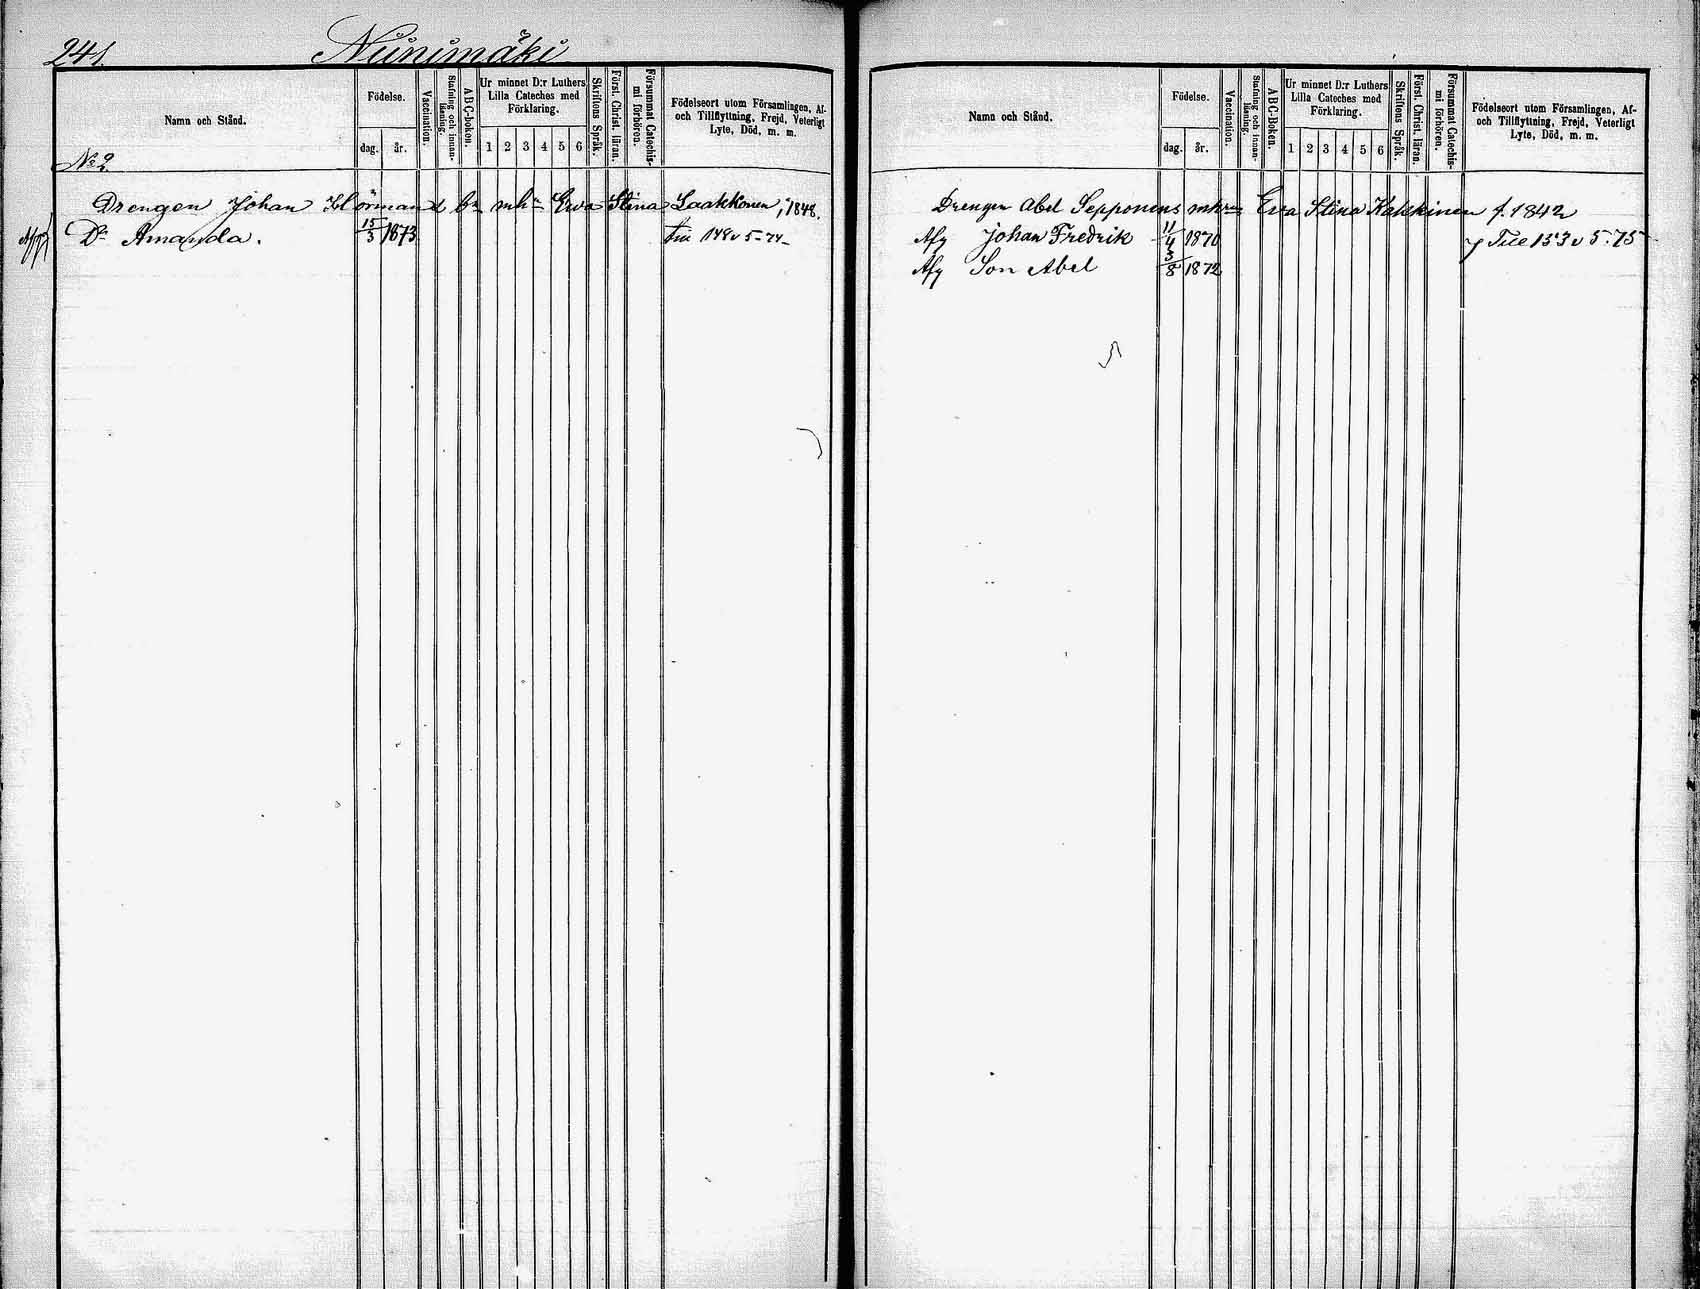 241.
Niinimäki
Namn och Stånd.
Födelse.
dag.
år.
Vaccination.
Stafning och innan-läsning.
ABC-boken.
Ur minnet D:r Luthers
Lilla Cateches med
Förklaring.
1 2 3 4 5 6
Skriftens Språk.
Först. Christ. läran.
Försummat Catechis-
mi förhören.
Födelseort utom Församlingen, Af-
och Tillflyttning, Frejd, Veterligt
Lyte, Död, m. m.
No 2
Drengen Johan Hörman mhn Erva Stina Laakkonen, 1848.
Dr Amanda. 15/3 1873 148 v 5-74
Namn och Stånd.
Födelse.
dag.
år.
Vaccination.
Stafning och innan-läsning.
ABC-Boken.
Ur minnet D:r Luthers
Lilla Cateches med
Förklaring.
1 2 3 4 5 6
Skriftens Språk.
Först. Christ. läran.
Försummat Catechis-
mi förhören.
Födelseort utom Församlingen, Af-
och Tillflyttning, Frejd, Veterligt
Lyte, Död, m. m.
Drengen Abel Sepponens Eva Stina Kakkinen f. 1842
Afg Johan Fredrik 11/4 1870 Till 153 v 5.75
Afg Son Abel 3/8 1872